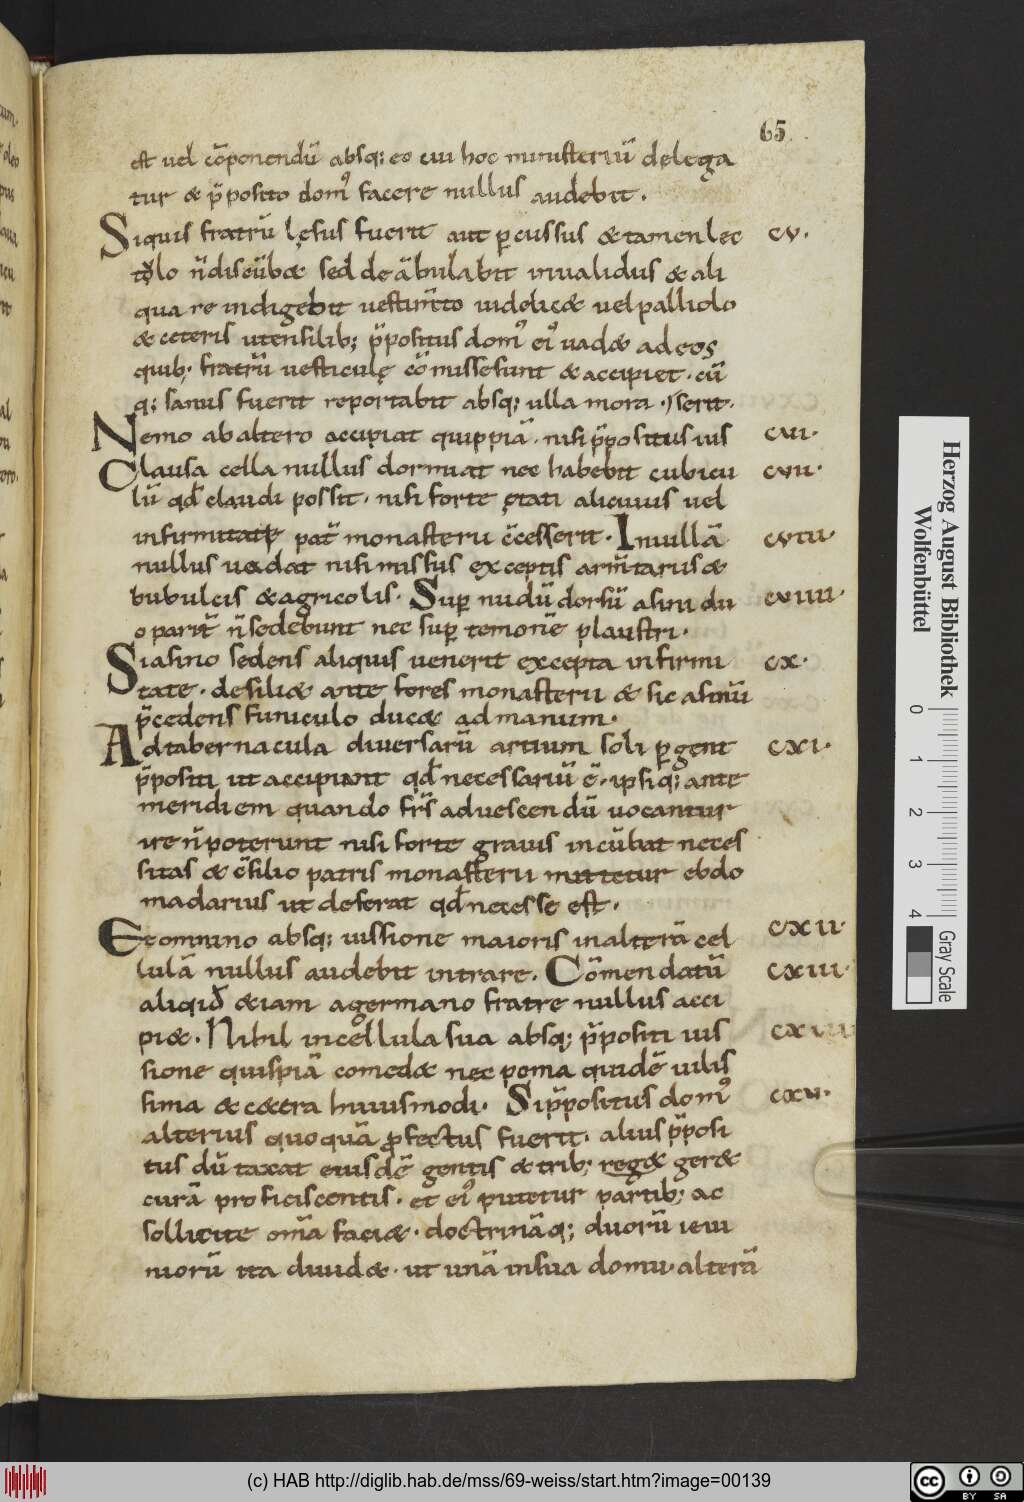 65
est vel cōponendū absq; eo cui hoc ministeriū delega
tur & p̄posito dom᾽ facere nullus audebit.
Siquis fratrū lęsus fuerit aut ꝑcussus & tamen lec cv.
tolo n̄ discūb& sed deābulabit invalidus & ali
qua re indigebit vestim̄to videlic& vel palliolo
& ceteris utensilib; p̄positus dom᾽ ei᾽ vad& ad eos
quib; fratrū vesticulę cōmisse sunt & accipiet. cū
q; sanus fuerit reportabit absq; ulla mora. serit.
Nemo ab altero accipiat quippiā. nisi p̄positus ius cvi.
Clausa cella nullus dormiat nec habebit cubicu cvii.
lū qđ claudi possit. nisi forte ętati alicuius vel
infirmitatę pat̄ monasterii c̄cesserit. In ullā cviii.
nullus vadat nisi missus exceptis arm̄tariis &
bubulcis & agricolis. Suꝑ nudū dorsū asini du cviiii.
o parit̄ n̄ sedebunt nec suꝑ temonē plaustri.
Si asino sedens aliquis venerit excepta infirmi cx.
tate. desili& ante fores monasterii & sic asinū
p̄cedens funiculo duc& ad manum.
Ad tabernacula diversarū artium soli ꝑgent cxi.
p̄positi ut accipiant qđ necessariū ē. ipsiq; ante
meridiem quando fr̄s ad vescendū vocantur
ire n̄ poterunt nisi forte gravis incūbat neces
sitas & c̄silio patris monasterii mittetur ebdo
madarius ut deferat qđ necesse est.
Et omnino absq; iussione maioris in alterā cel cxii.
lulā nullus audebit intrare. Cōmendatū cxiii.
aliqiđ &iam a germano fratre nullus acci
pi&. Nihil in cellula sua absq; p̄positi ius cxiiii
sione quispiā comed& nec poma quidē vilis
sima & c&era huiusmodi. Si p̄positus dom᾽ cxv.
alterius quoquā ꝓfectus fuerit. alius p̄posi
tus dū taxat eiusdē gentis & trib; reg& ger&
curā proficiscentis. et ei᾽ putetur partib; ac
sollicite om̄a faci&. doctrināq; duorū ieiu
niorū ita divid&. ut unā in sua domu. alterā
Herzog August Bibliothek
Wolfenbüttel
0 1 2 3 4
Gray Scale
(c) HAB http://diglib.hab.de/mss/69-weiss/start.htm?image=00139
cc BY SA